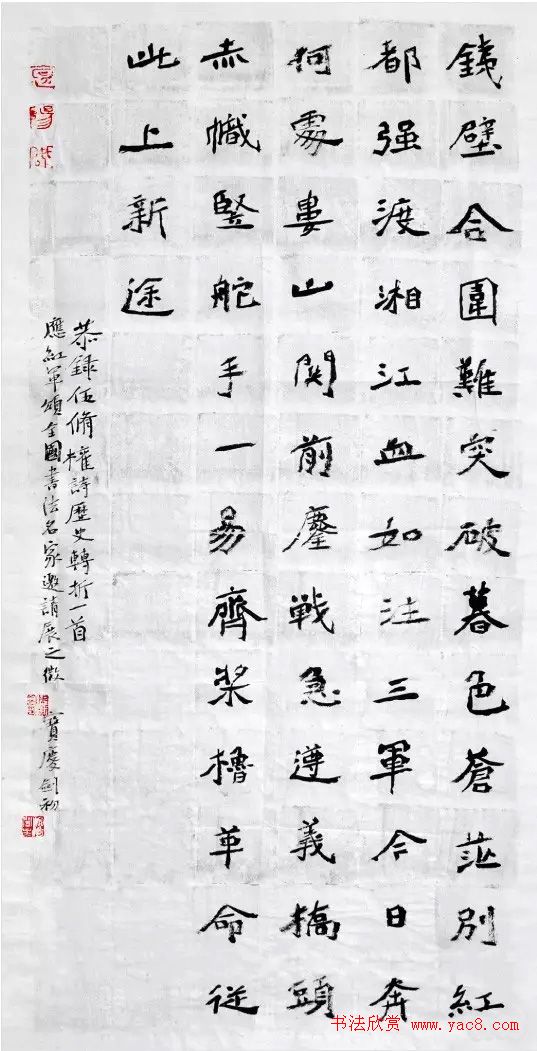 銕壁合圍難突破暮色蒼茫別紅
都强渡湘江血如注三軍今日奔
何處婁山関前鏖戰急遵義橋頭
赤幟竪舵手一易齊桨櫓革命従
此上新途
恭録伍脩權詩歷史轉折一首
應紅軍頌全國書法名家邀請展之徵
寶慶劍初
书法欣赏 www.yac8.com